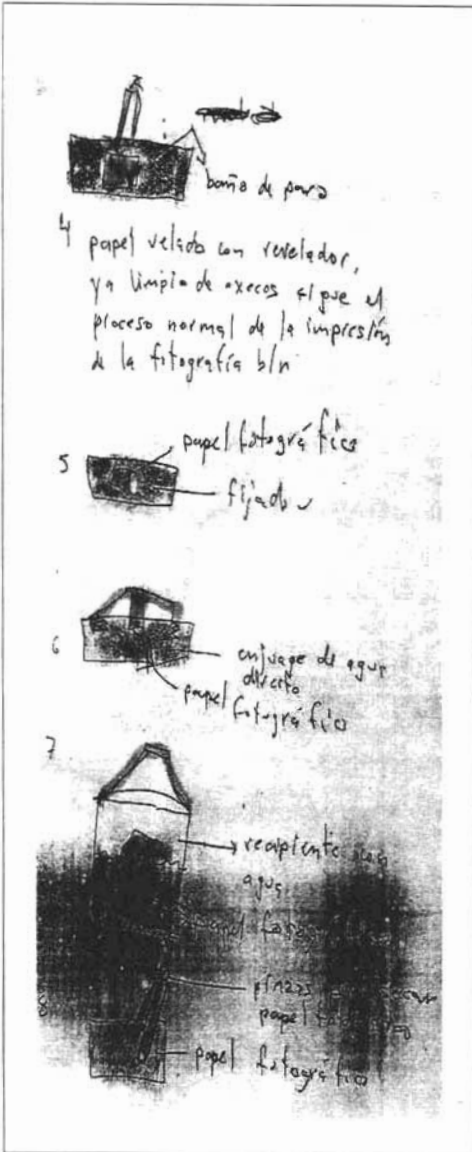 baño de paro
4 papel velado con revelador,
ya limpio de execos sigue el
proceso normal de la impresión
de la fitografía b/n
papel fotográfico
5
fijado
6
enjuage de agua
directo
papel
fotográfico
7
recipiente con
agua
papel
pinzas
papel
8
papel fotográfico